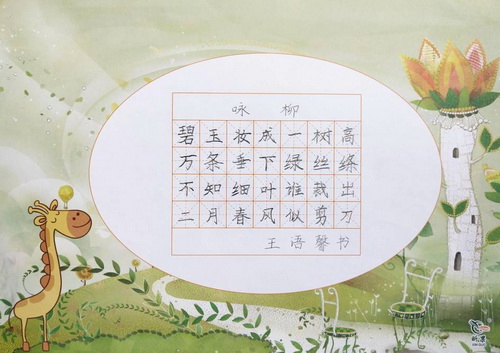 咏柳
碧玉妆成一树高
万条垂下绿丝绦
不知细叶谁裁出
二月春风似剪刀
王语馨书